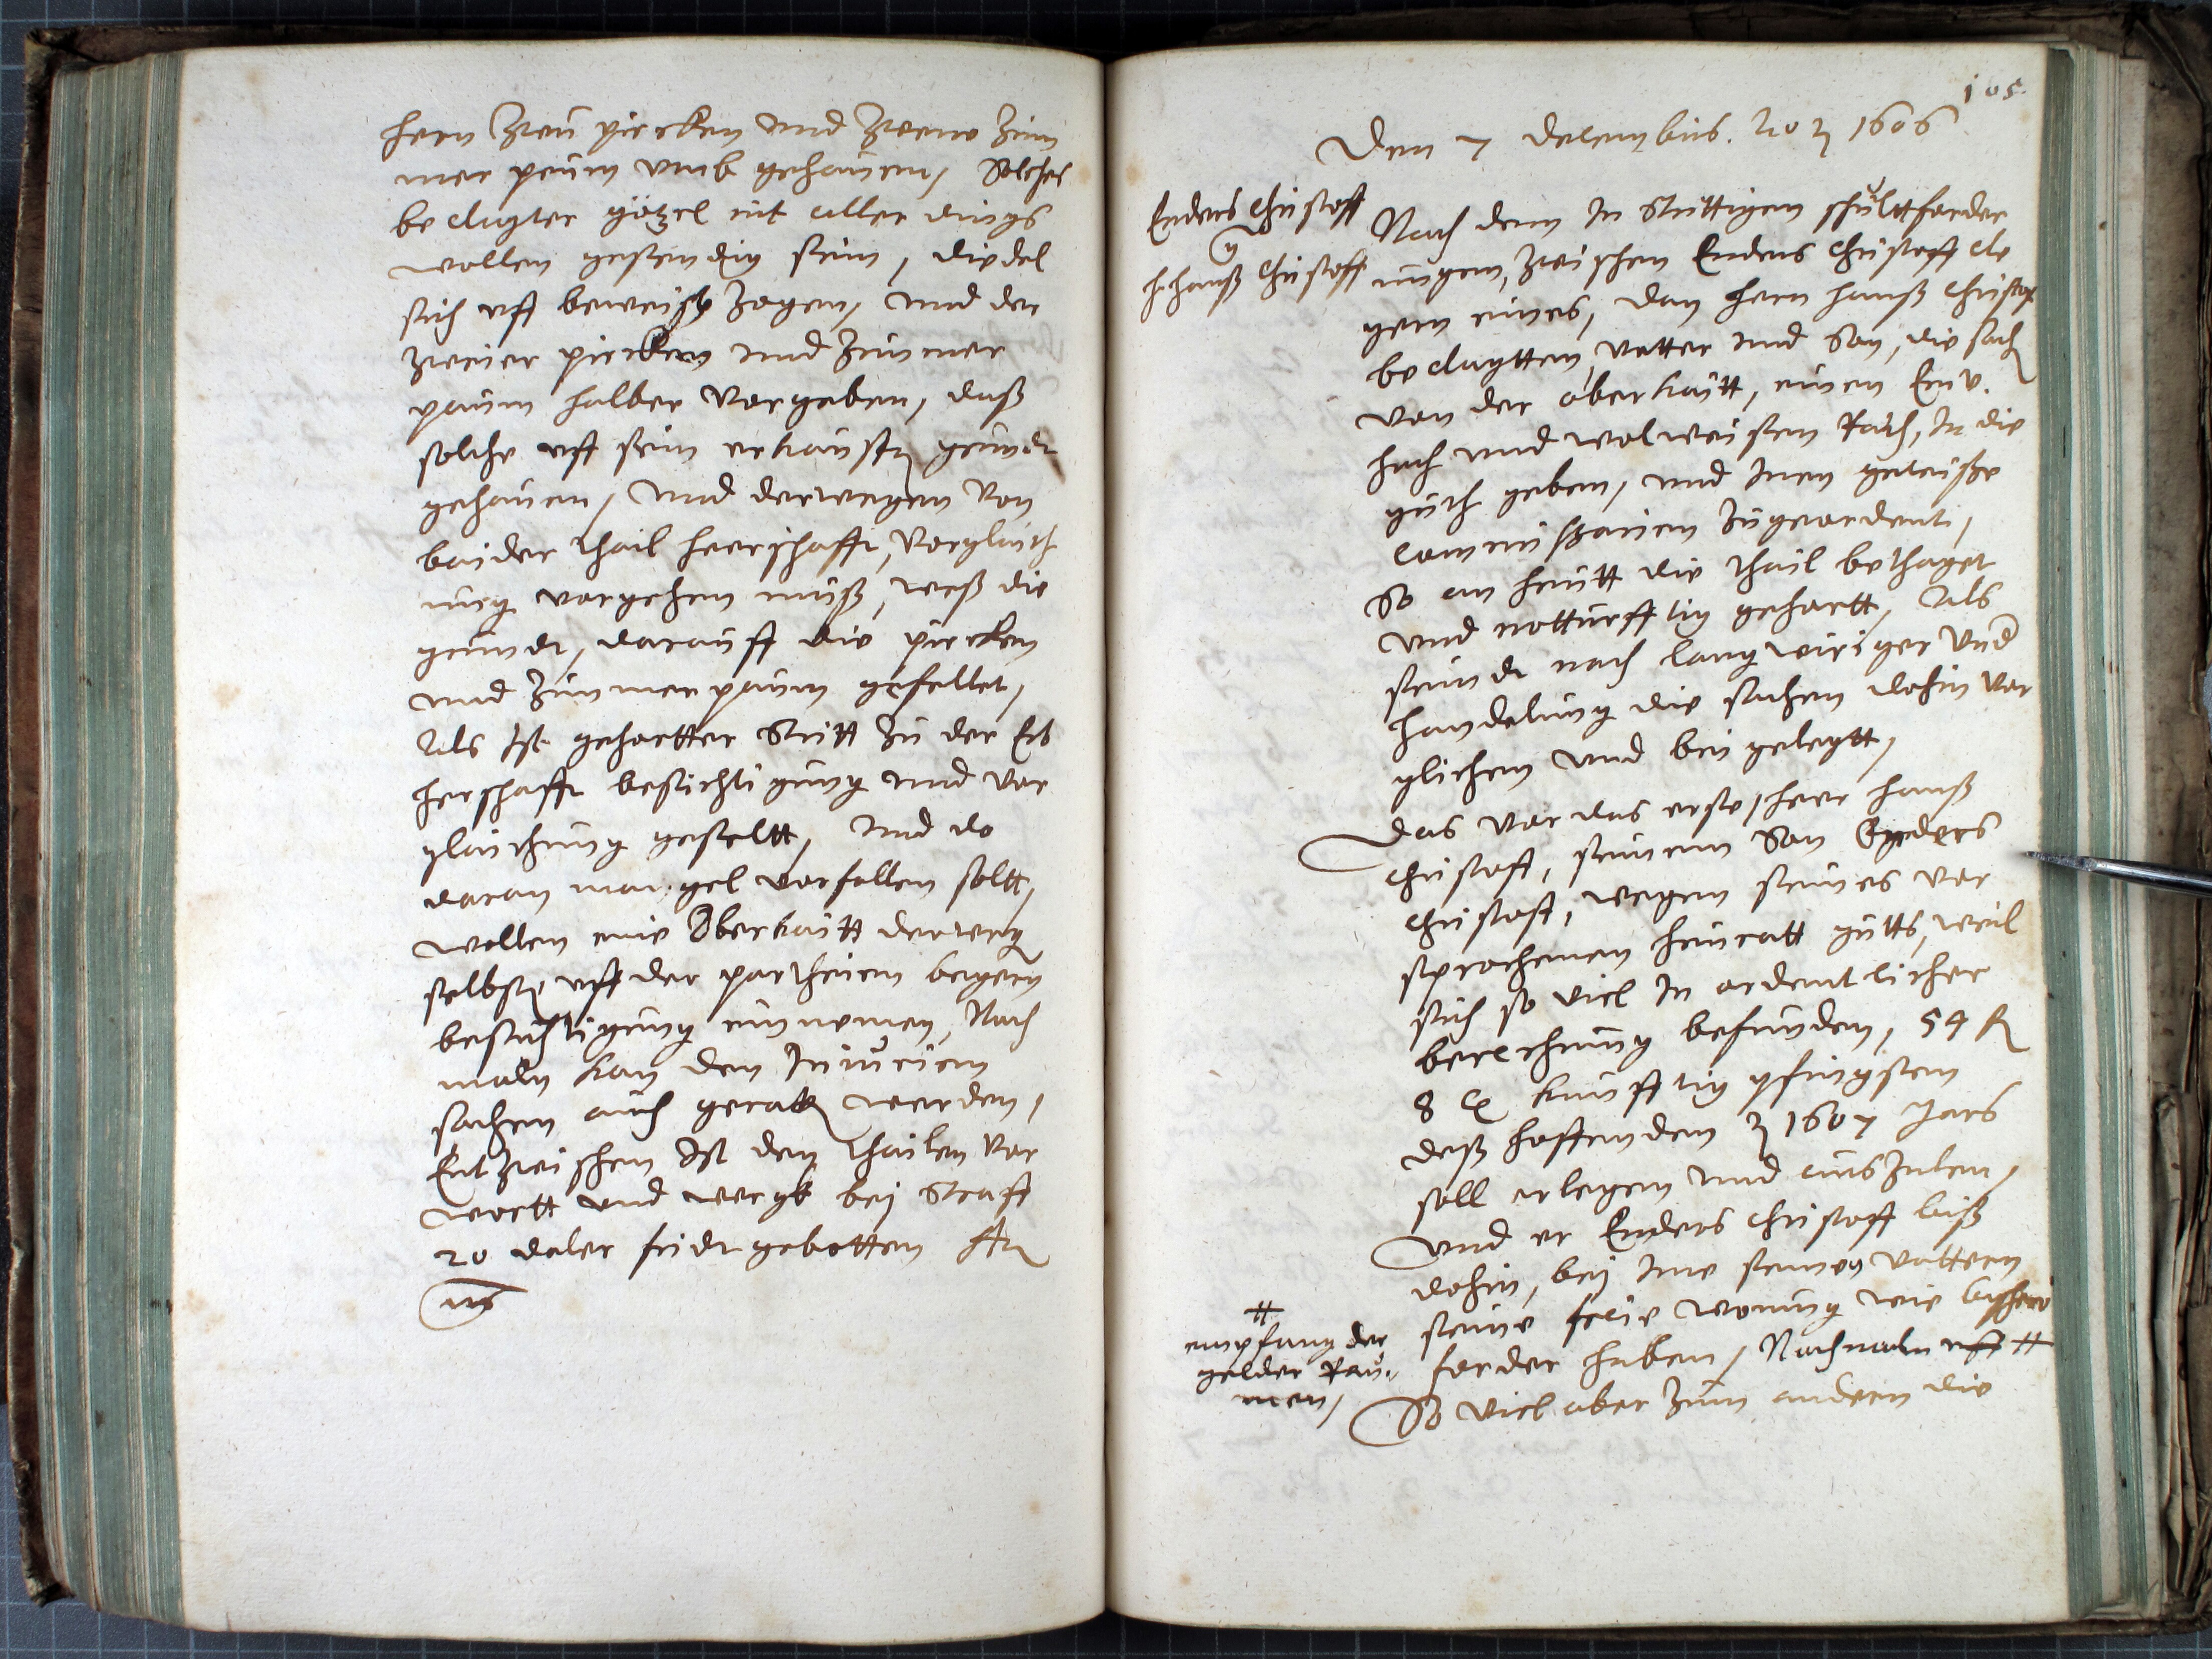 hern zwu pircken und zwene zim
mer peum umb gehauen, Solches
beclagter götzel nit aller dings
wollen gestendig sein, diedel
sich uff beweiß zogen, und der
zweier pircken und Zimmer
paum halber vorgeben, daß
solche uff sein erkaufftn grundt
gehauen, und derwegen von
baider thail heerschafft, vorglaich
nug vorgehen muß, weß die
grundt, darauff die pircken
und Zimmerpaum gefellet,
Als Ist gehortter Stritt zu der Erb
herschafft besichtigung und vor
glaichung gestellt, Und do
daran mangel vorfallen soltt,
wollen eine Oberkaitt derweg
selbst uff der partheien begern
besichtigung einnemen, Nach
maln kan den Iniurien
sachen auch geratn werden,
Entzwischen Ist den thailen vor
wortt und wergk bej Straff
20 daler fridt gebotten
105.
Den 7 decembris. Ao 1606
Enders Christoff
h. hanß Christoff
Nach dem In Strittigen schultforder
ungen, zwischen Enders Christoff cle
gern eines, dan hern hanß Christof
beclagtten, vatter und Son, die sach
von der oberkaitt, einen Env.
hoch und wolweisen Rath, In die
guth geben, und Inen gewisse
commissarien zugeordent,
So an heutt die thail bethaget
und notturfftig gehortt, Als
seindt nach langwiriger Und
handelung die sachen dohin vor
glichen und bei gelegtt,
Das vor das erste, heer hanß
Christoff, seinem Son Enders
Christoff, wegen seines vor
sprochenen heiratt gutts, weil
sich so viel In ordentlicher
berechnung befunden, 54 fl
8 gr kunfftig pfingsten
deß hoffenden 1607 Jars
soll erlegen und auszalen,
Und er Enders Christoff biß
dohin, bej Ime seinen vattern
seine freie wonung wie bißhero
forder haben, Nachmaln uff #
#
empfang der
gelder Rau-
men,
So viel aber zum andern die